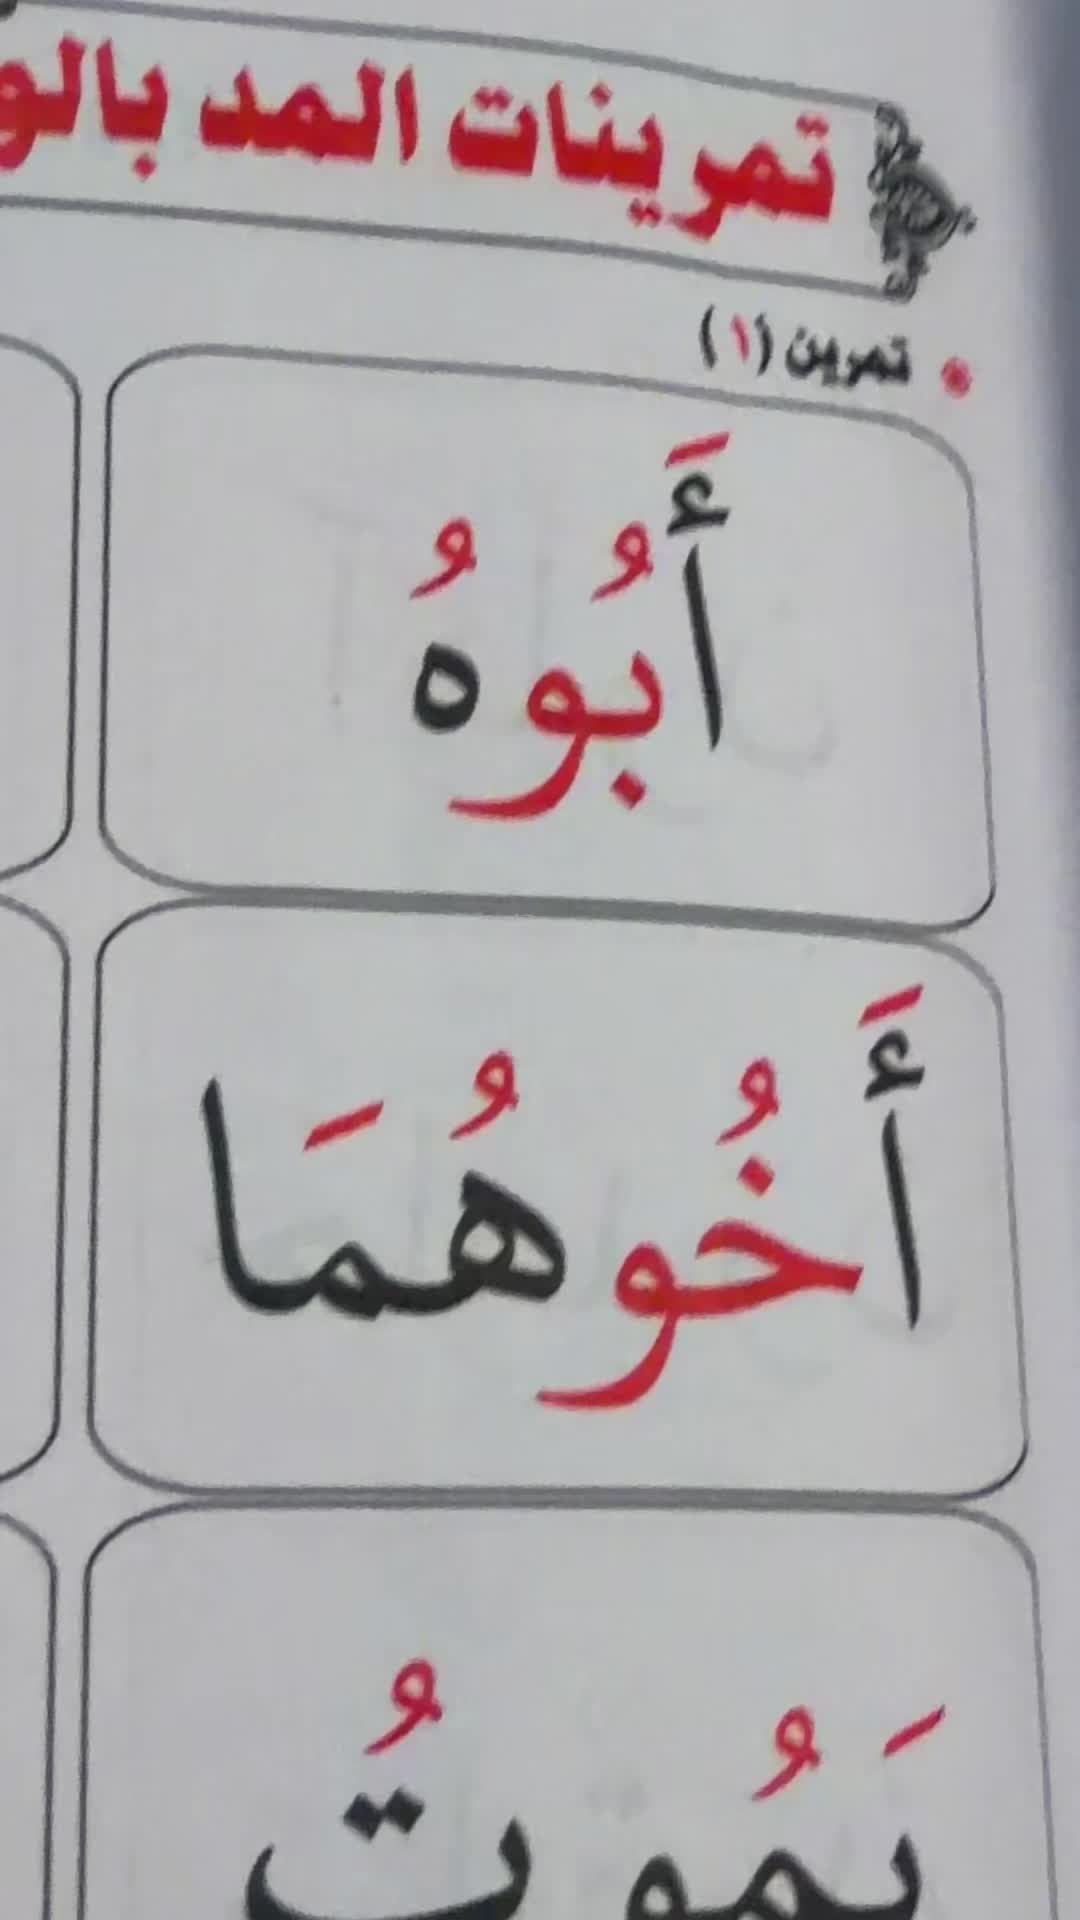 تمرينات المد بالو
تمرين (١)
أَبُوهُ
أَخُوهُمَا
يَمُوتُ